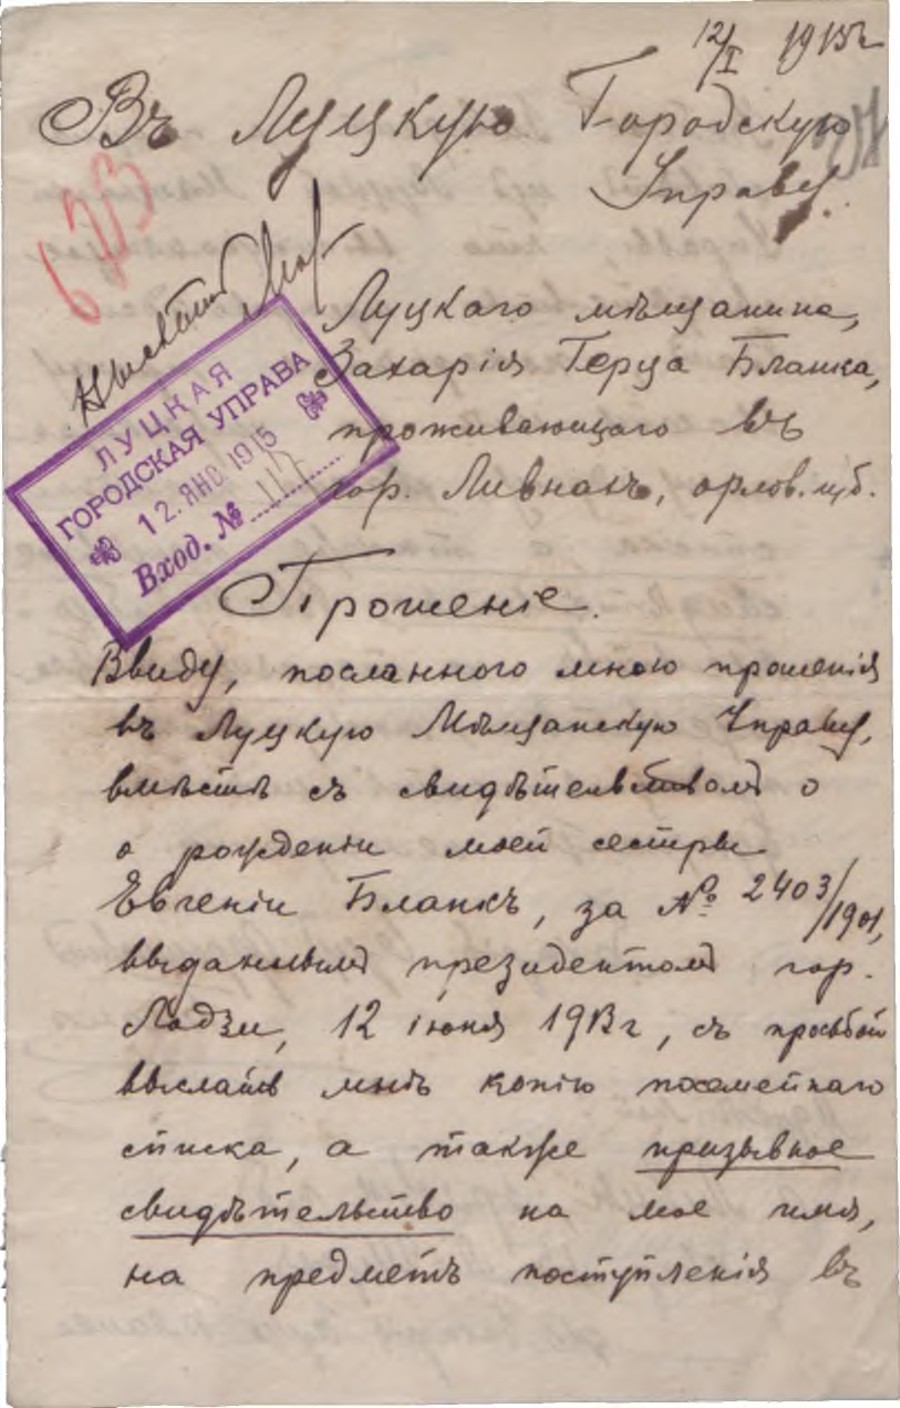 12/I 1915 г.
Въ Луцкую Городскую
Управу.
673
Выслать
Луцкаго мѣщанина,
Захарія Герца Бланка,
проживающаго въ
гор. Ливнахъ, орлов. губ.
ЛУЦКАЯ
ГОРОДСКАЯ УПРАВА
12. ЯНВ. 1915
Вход. № 117
Прошеніе.
Ввиду, посланного мною прошенія
въ Луцкую Мѣщанскую Управу,
вмѣстѣ съ свидѣтельствомъ о
о рожденіи моей сестры
Евгеніи Бланкъ, за № 2403/1901,
выданнымъ президентомъ гор.
Лодзи, 12 іюня 1913 г, съ просьбой
выслать мнѣ копію посемейнаго
списка, а также призывное
свидѣтельство на мое имя,
на предметъ поступленія въ